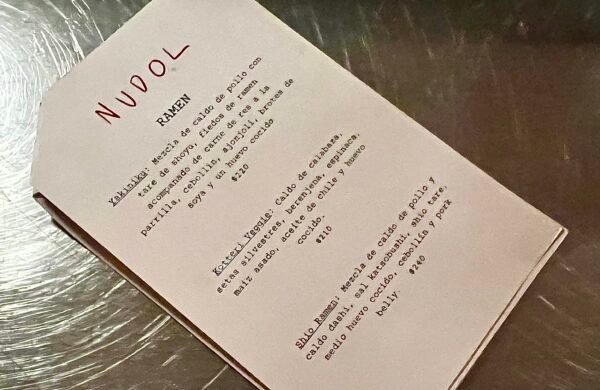 NUDOL
RAMEN
Yakiniku: Mezcla de caldo de pollo con
tare de shoyu, fiedos de ramen
acompanado de carne de res a la
parrilla, cebollín, ajonjolí, brotes de
soya y un huevo cocido
$220
Kotteri Veggie: Caldo de calabaza,
setas silvestres, berenjena, espinaca,
maíz asado, aceite de chile y huevo
cocido.
$210
Shio Ramen: Mezcla de caldo de pollo y
caldo dashi, sal katsobushi, shio tare,
medio huevo cocido, cebollín y pork
belly.
$240